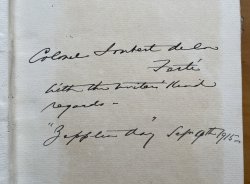 Colonel Lambert de la
Forté
With the writer's kind
regards -
"Zeppelin day" Sep 9th 1915.